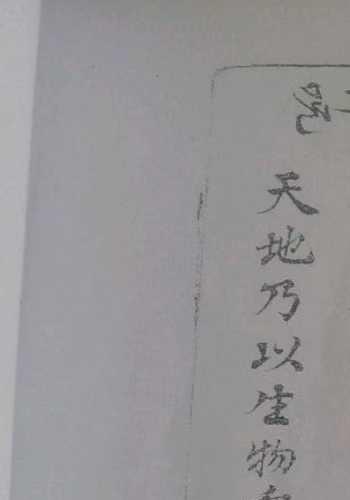 天地乃以生物